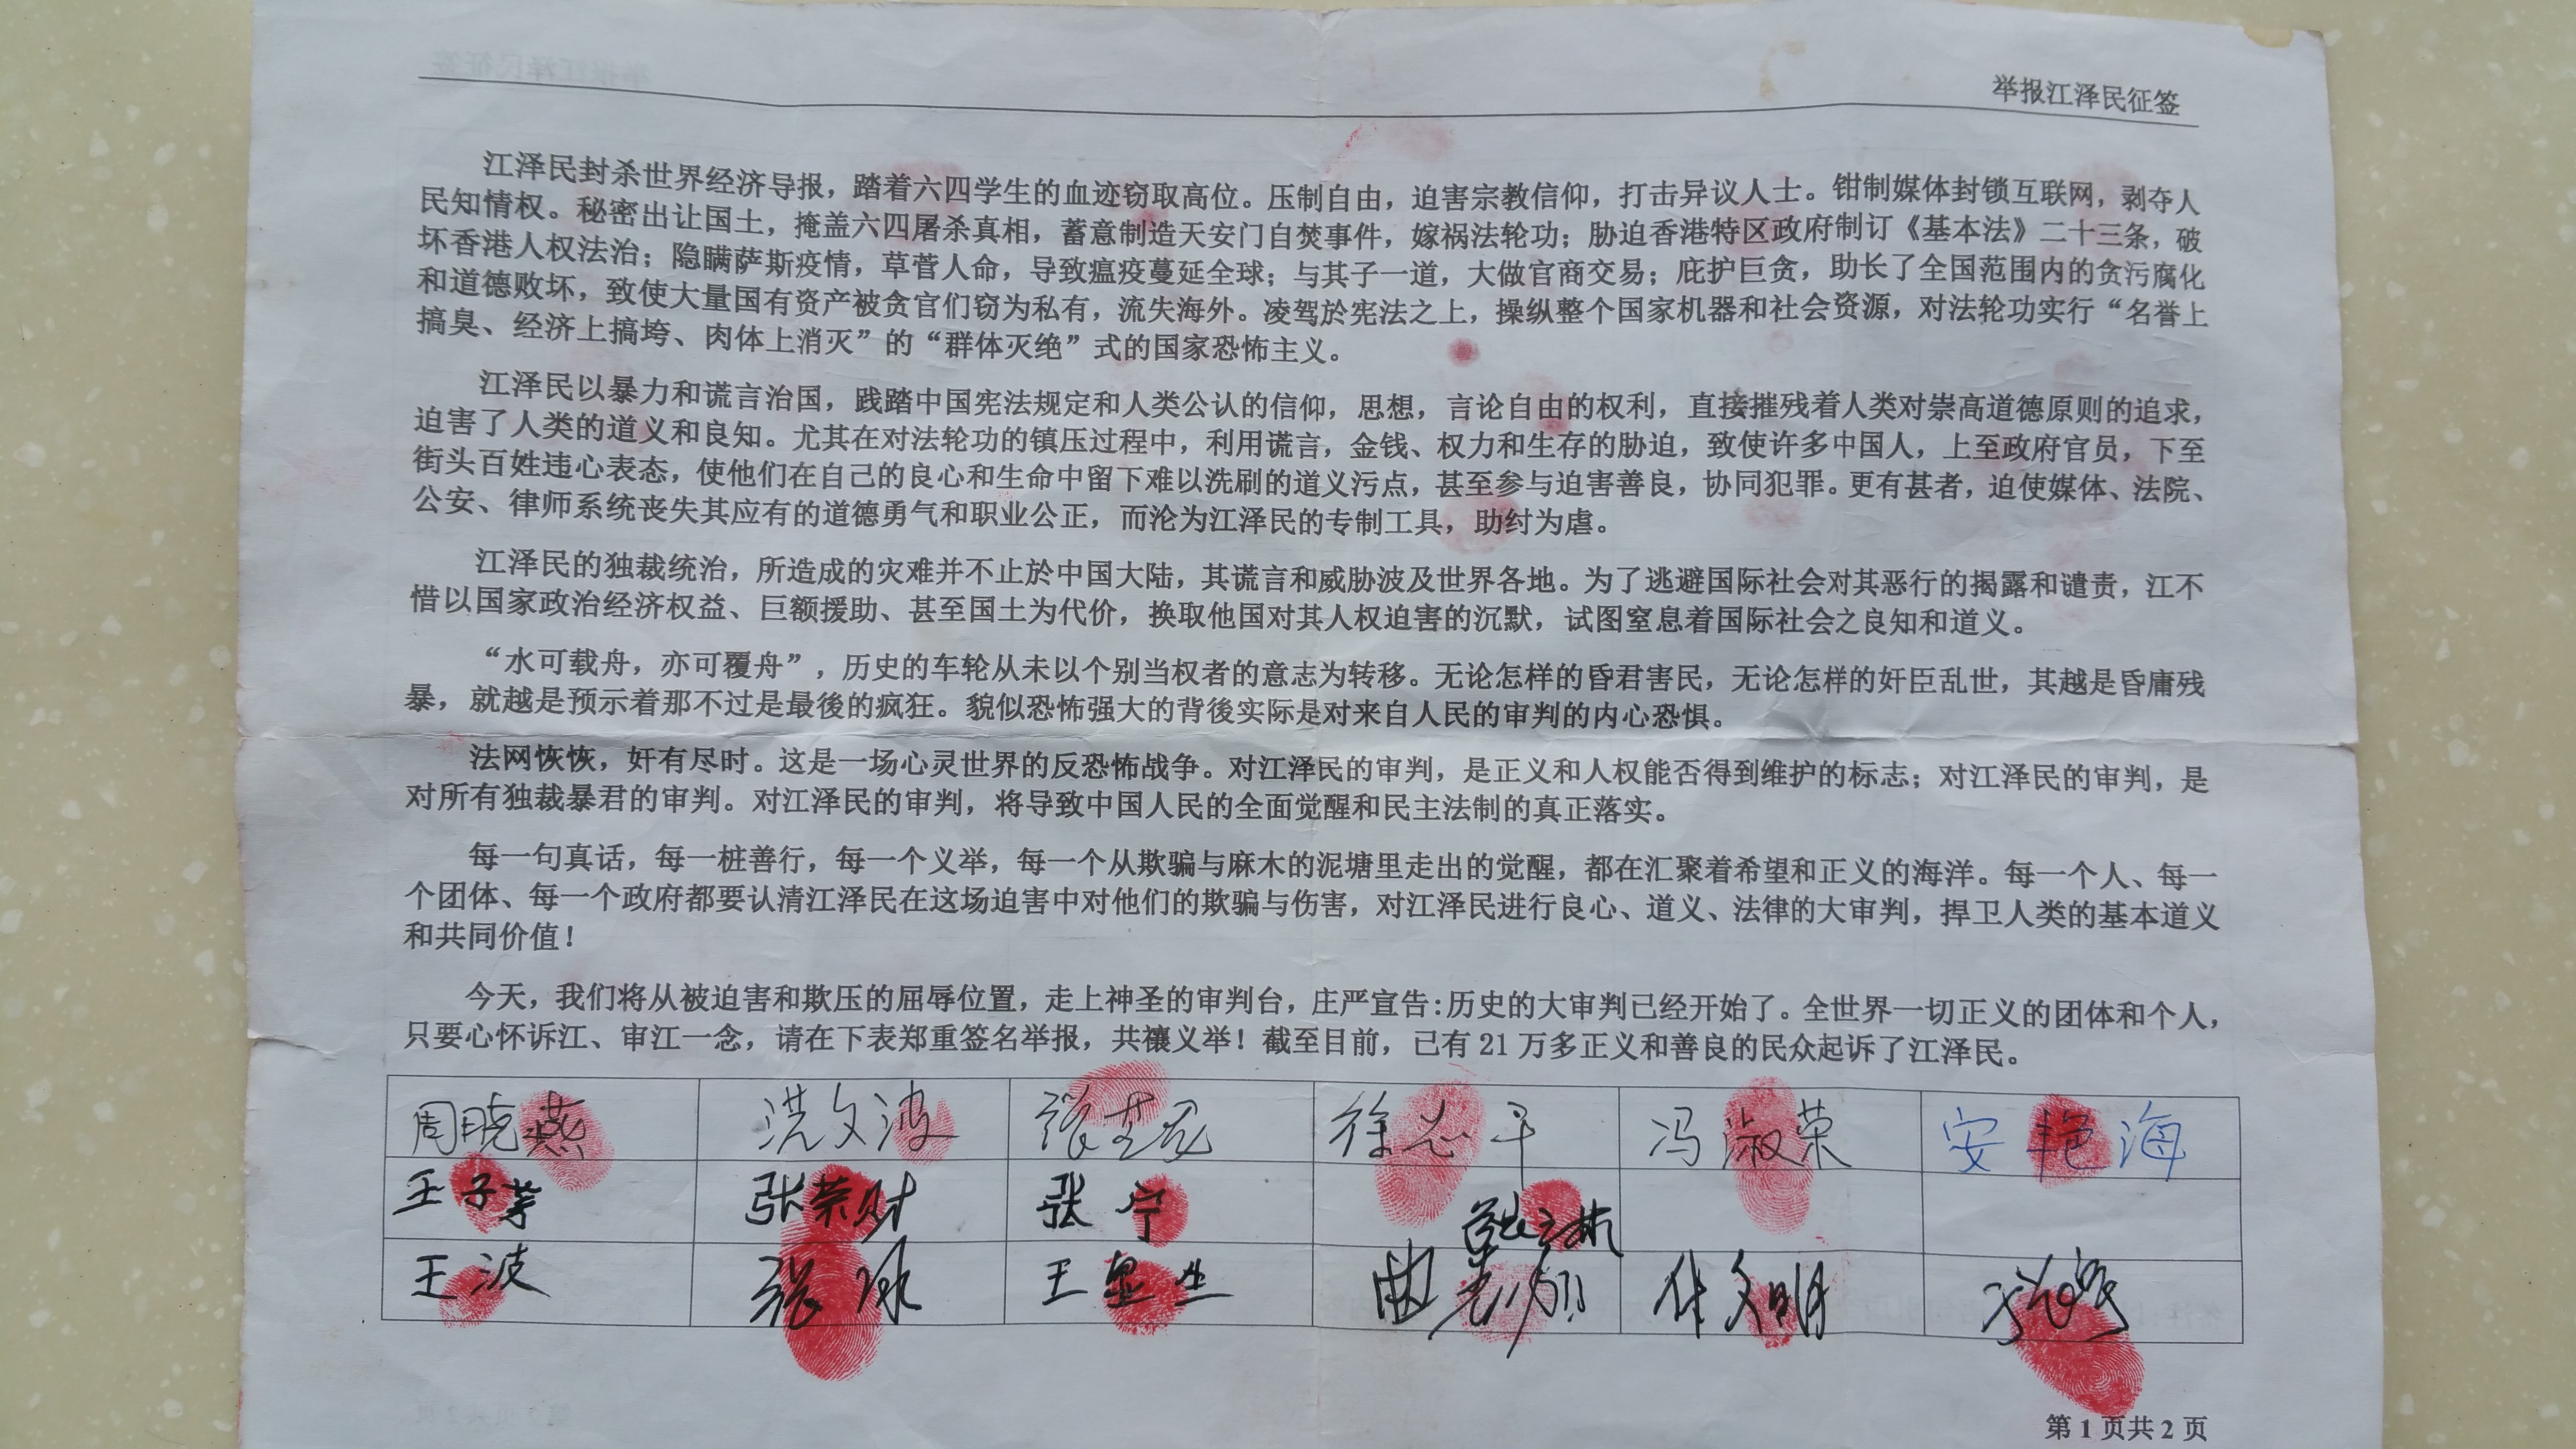 举报江泽民征签
江泽民封杀世界经济导报，踏着六四学生的血迹窃取高位。压制自由，迫害宗教信仰，打击异议人士。钳制媒体封锁互联网，剥夺人
民知情权。秘密出让国土，掩盖六四屠杀真相，蓄意制造天安门自焚事件，嫁祸法轮功；胁迫香港特区政府制订《基本法》二十三条，破
坏香港人权法治；隐瞒萨斯疫情，草菅人命，导致瘟疫蔓延全球；与其子一道，大做官商交易；庇护巨贪，助长了全国范围内的贪污腐化
和道德败坏，致使大量国有资产被贪官们窃为私有，流失海外。凌驾於宪法之上，操纵整个国家机器和社会资源，对法轮功实行“名誉上
搞臭、经济上搞垮、肉体上消灭”的“群体灭绝”式的国家恐怖主义。
江泽民以暴力和谎言治国，践踏中国宪法规定和人类公认的信仰，思想，言论自由的权利，直接摧残着人类对崇高道德原则的追求，
迫害了人类的道义和良知。尤其在对法轮功的镇压过程中，利用谎言，金钱、权力和生存的胁迫，致使许多中国人，上至政府官员，下至
街头百姓违心表态，使他们在自己的良心和生命中留下难以洗刷的道义污点，甚至参与迫害善良，协同犯罪。更有甚者，迫使媒体、法院、
公安、律师系统丧失其应有的道德勇气和职业公正，而沦为江泽民的专制工具，助纣为虐。
江泽民的独裁统治，所造成的灾难并不止於中国大陆，其谎言和威胁波及世界各地。为了逃避国际社会对其恶行的揭露和谴责，江不
惜以国家政治经济权益、巨额援助、甚至国土为代价，换取他国对其人权迫害的沉默，试图窒息着国际社会之良知和道义。
“水可载舟，亦可覆舟”，历史的车轮从未以个别当权者的意志为转移。无论怎样的昏君害民，无论怎样的奸臣乱世，其越是昏庸残
暴，就越是预示着那不过是最後的疯狂。貌似恐怖强大的背後实际是对来自人民的审判的内心恐惧。
法网恢恢，奸有尽时。这是一场心灵世界的反恐怖战争。对江泽民的审判，是正义和人权能否得到维护的标志；对江泽民的审判，是
对所有独裁暴君的审判。对江泽民的审判，将导致中国人民的全面觉醒和民主法制的真正落实。
每一句真话，每一桩善行，每一个义举，每一个从欺骗与麻木的泥塘里走出的觉醒，都在汇聚着希望和正义的海洋。每一个人、每一
个团体、每一个政府都要认清江泽民在这场迫害中对他们的欺骗与伤害，对江泽民进行良心、道义、法律的大审判，捍卫人类的基本道义
和共同价值！
今天，我们将从被迫害和欺压的屈辱位置，走上神圣的审判台，庄严宣告：历史的大审判已经开始了。全世界一切正义的团体和个人，
只要心怀诉江、审江一念，请在下表郑重签名举报，共襄义举！截至目前，已有 21 万多正义和善良的民众起诉了江泽民。
周晓燕 洪文波 徐志平 冯淑荣 安艳海
张荣财 张宁
王波 张
第 1 页共 2 页